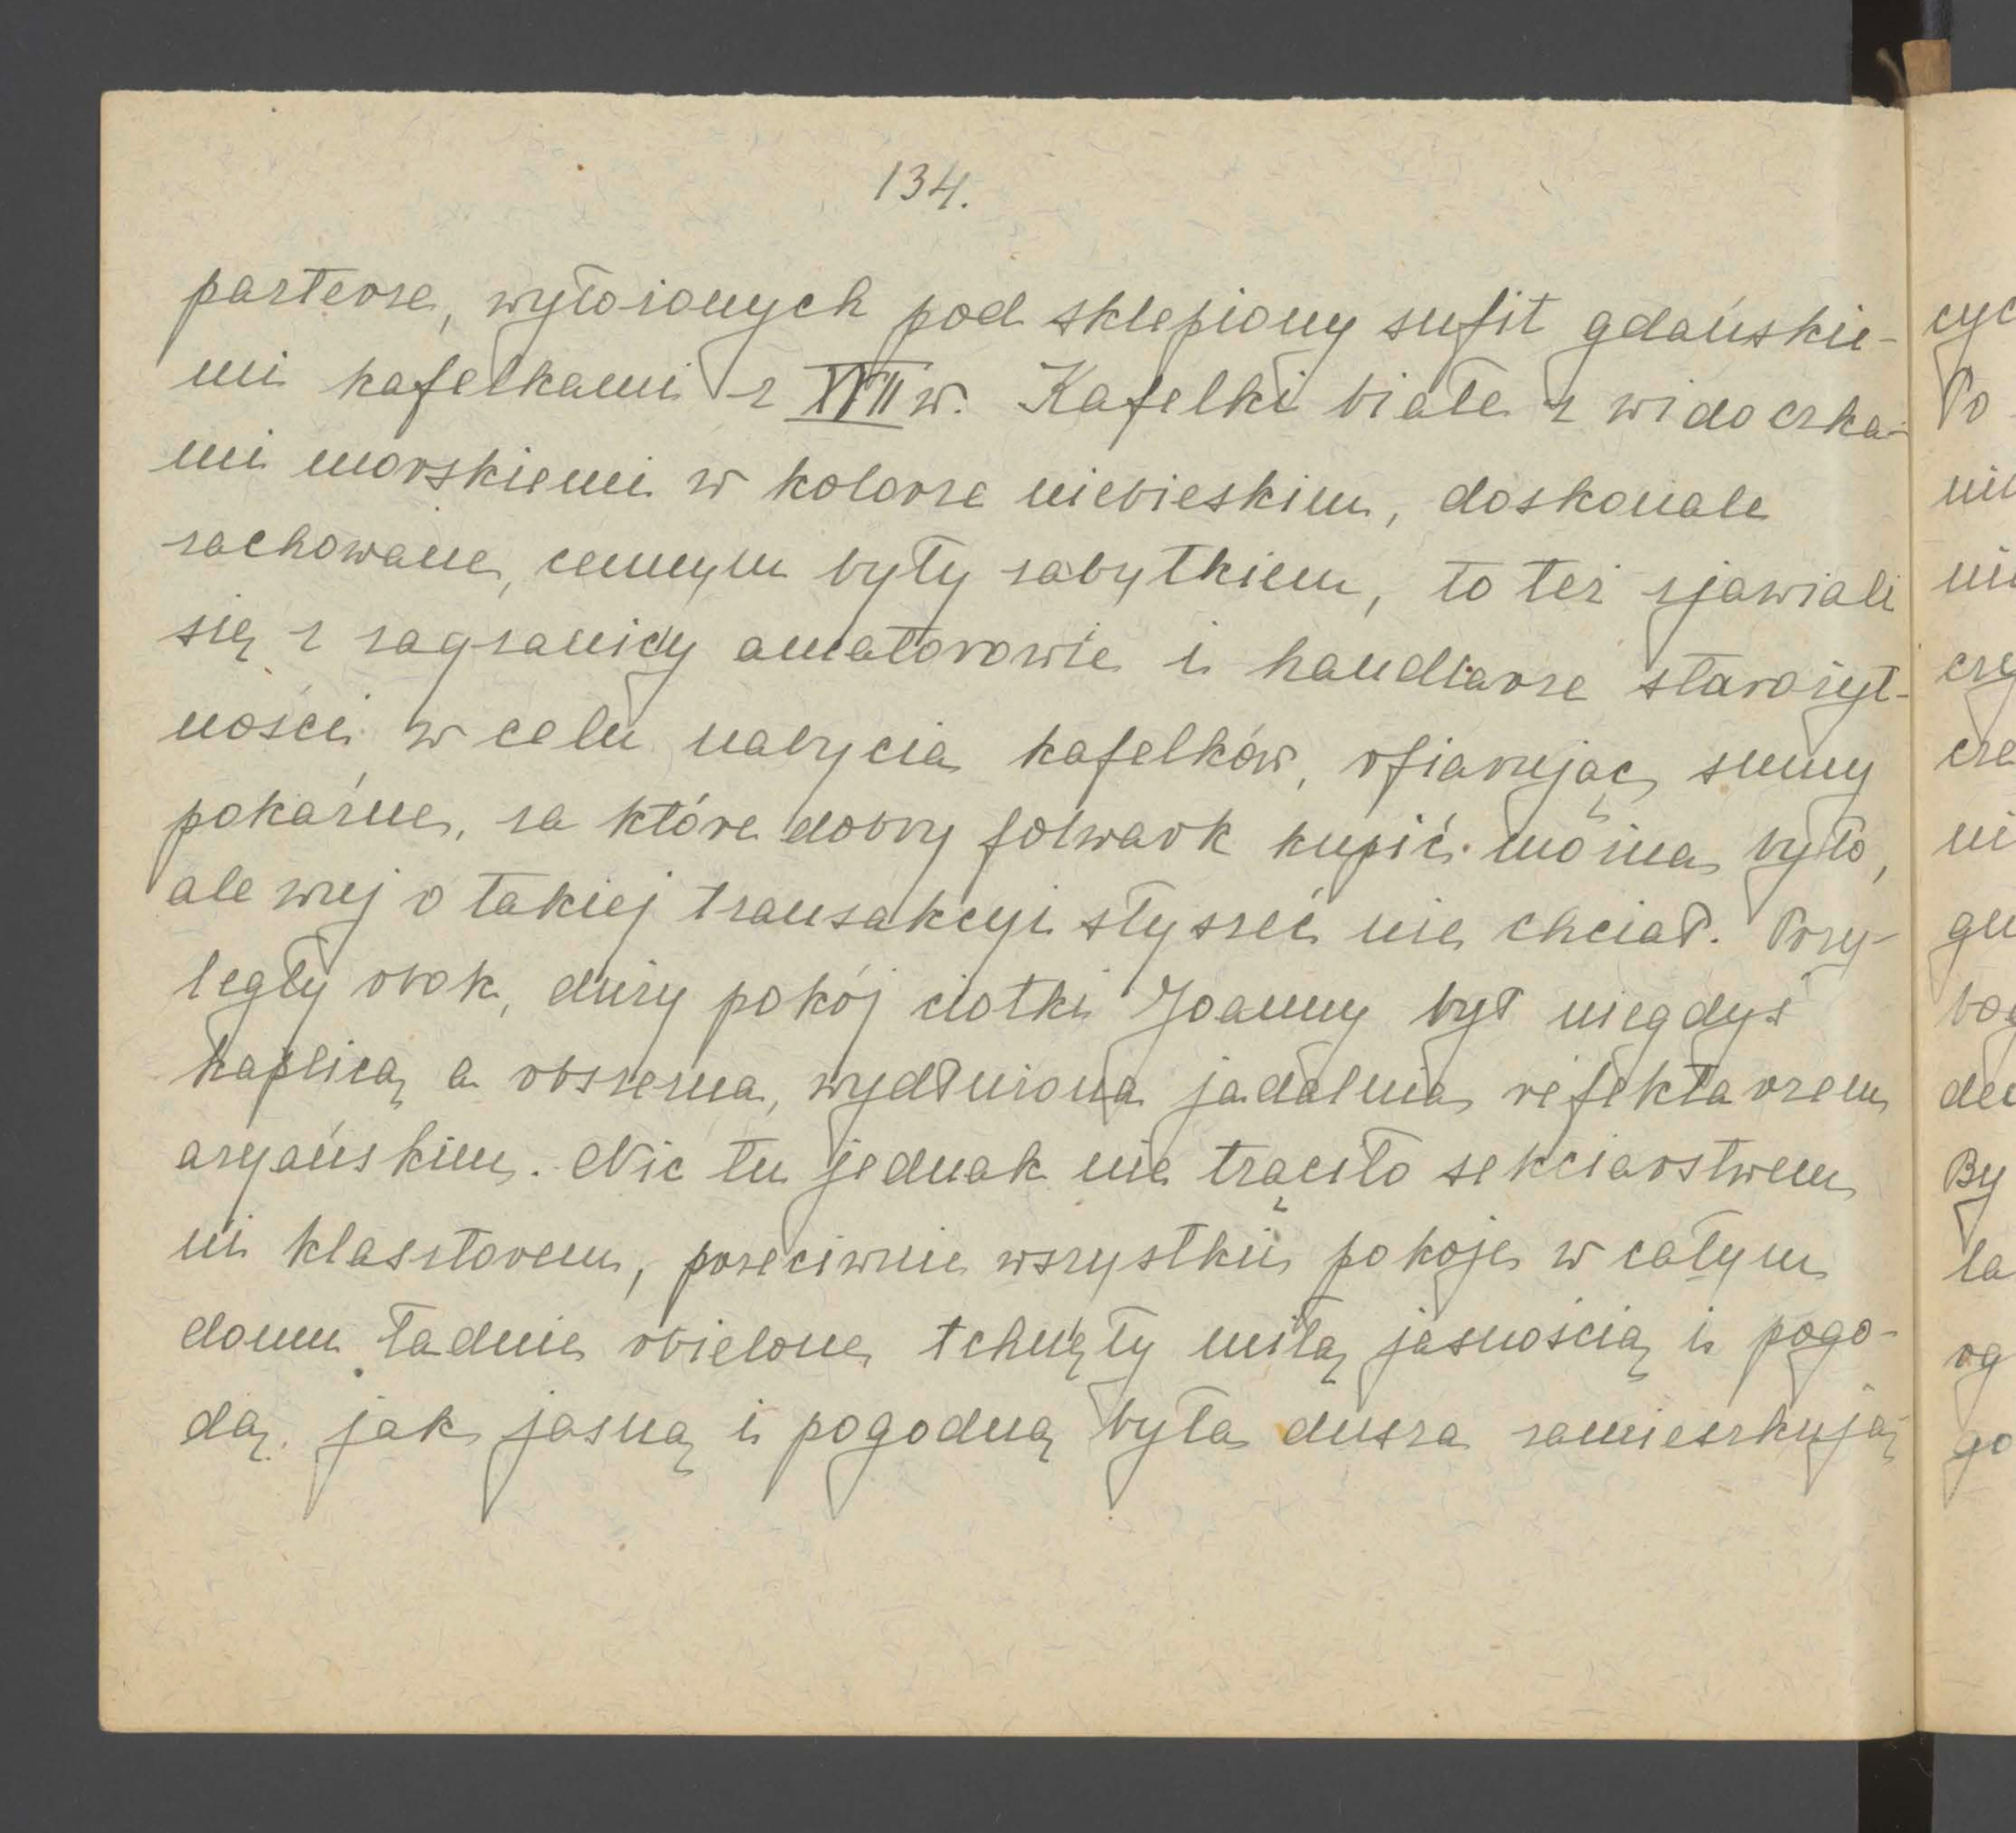 134.
parterze, wyłożonych pod sklepiony sufit gdańskie-
mi kafelkami z XVII w. Kafelki białe z widoczka-
mi morskiemi w kolorze niebieskim, doskonale
zachowane, cennym były zabytkiem, to też zjawiali
się z zagranicy amatorowie i handlarze starożyt-
ności w celu nabycia kafelków, ofiarując sumy
pokaźne, za które dobry folwark kupić można było,
ale wuj o takiej transakcyi słyszeć nie chciał. Przy-
legły obok, duży pokój ciotki Joanny był niegdyś
kaplicą, a obszerna, wydłużona jadalnia, refektarzem
aryańskim. Nic tu jednak nie trąciło sekciarstwem
ni klasztorem, przeciwnie wszystkie pokoje w całym
domu ładnie obielone, tchnęły miłą jasnością i pogo-
dą, jak jasną i pogodną była dusza zamieszkują-
cyc
Po